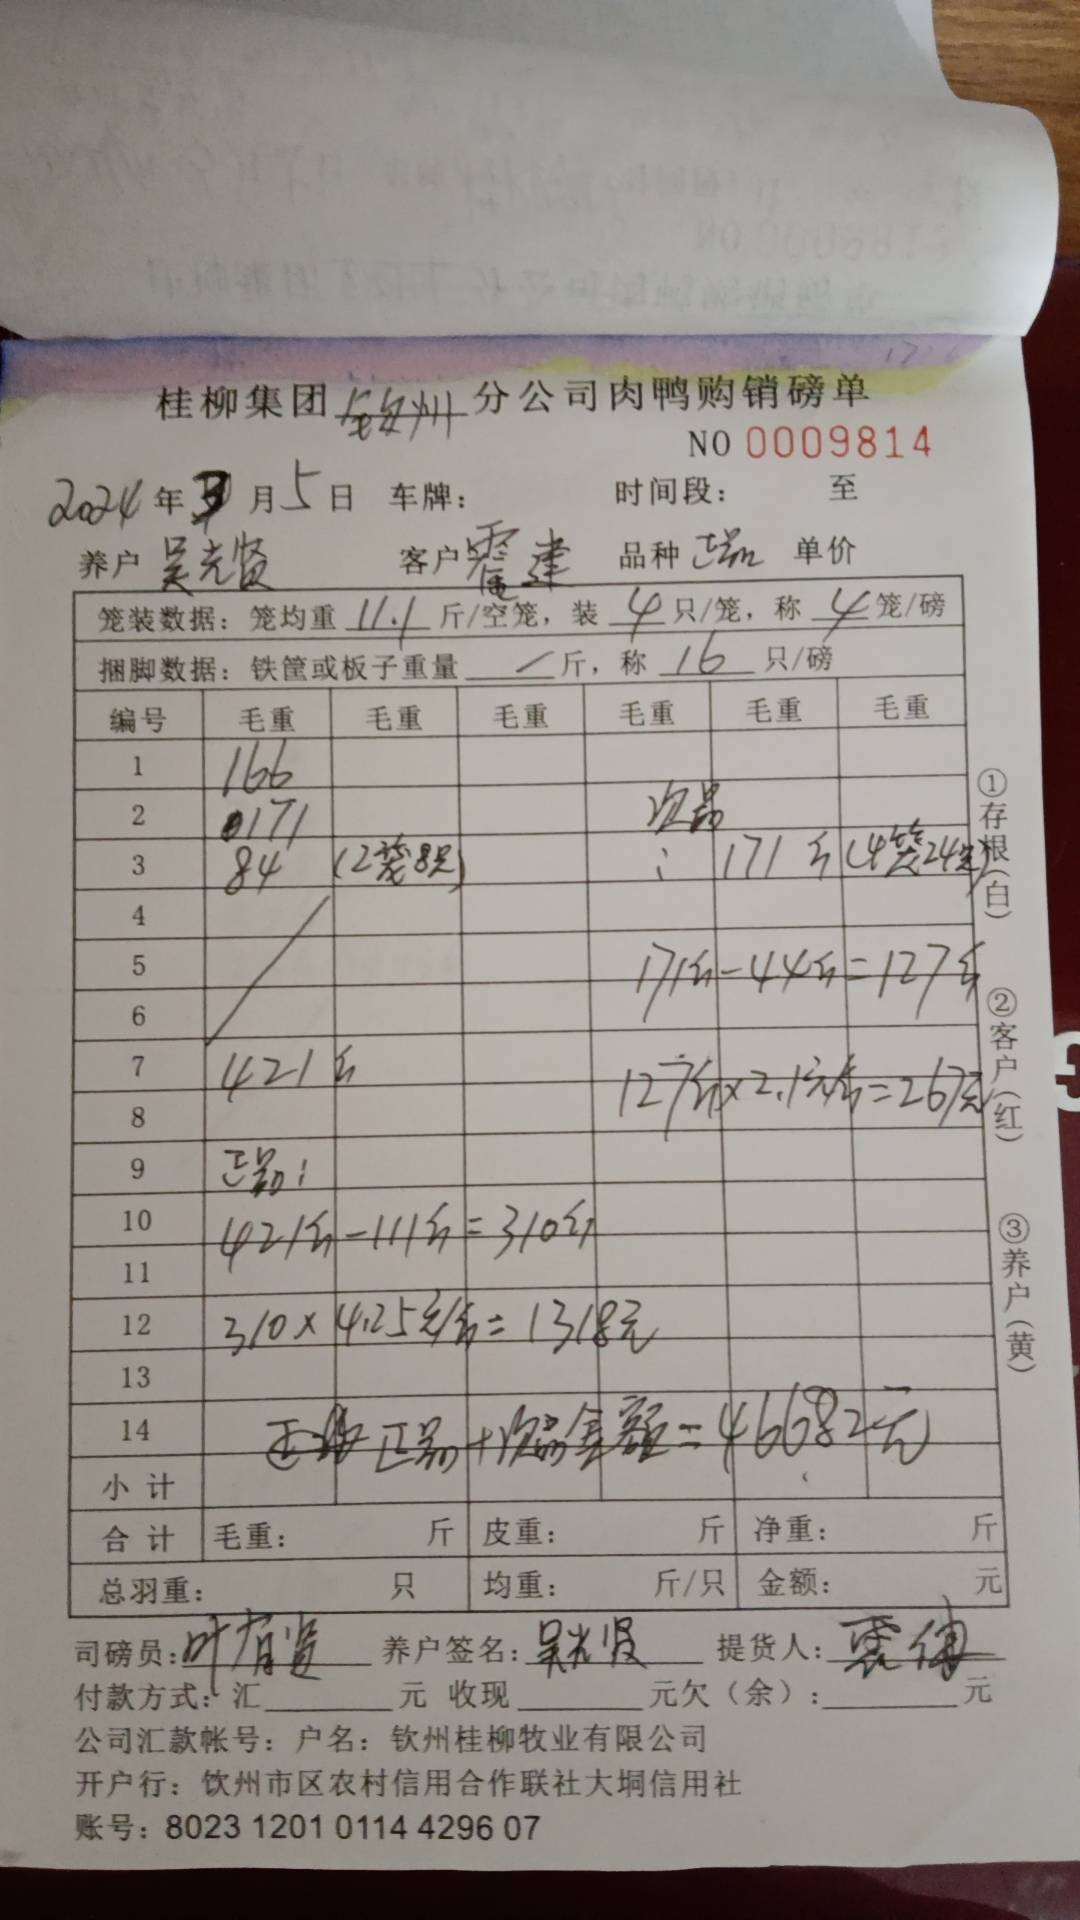 桂柳集团钦州分公司肉鸭购销磅单
NO 0009814
2024年3月5日 车牌: 时间段: 至
养户 吴光贤 客户 霍建 品种 正品 单价
笼装数据: 笼均重 11.1 斤/空笼, 装 4 只/笼, 称 4 笼/磅
捆脚数据: 铁筐或板子重量 / 斤, 称 16 只/磅
编号 毛重 毛重 毛重 毛重 毛重 毛重
1 166
2 171 次品
3 84 (2笼8只) : 171斤 (4笼24只)
4
5 171斤-44斤=127斤
6
7 421斤 127斤×2.1元/斤=267元
8
9 正品:
10 421斤-111斤=310斤
11
12 310×4.25元/斤=1318元
13
14 正品+次品金额=46682元
小计
合计 毛重: 斤 皮重: 斤 净重: 斤
总羽重: 只 均重: 斤/只 金额: 元
司磅员: 叶有贤 养户签名: 吴光贤 提货人:
付款方式: 汇 元 收现 元欠(余): 元
公司汇款帐号: 户名: 钦州桂柳牧业有限公司
开户行: 饮州市区农村信用合作联社大垌信用社
账号: 8023 1201 0114 4296 07
①存根(白)
②客户(红)
③养户(黄)